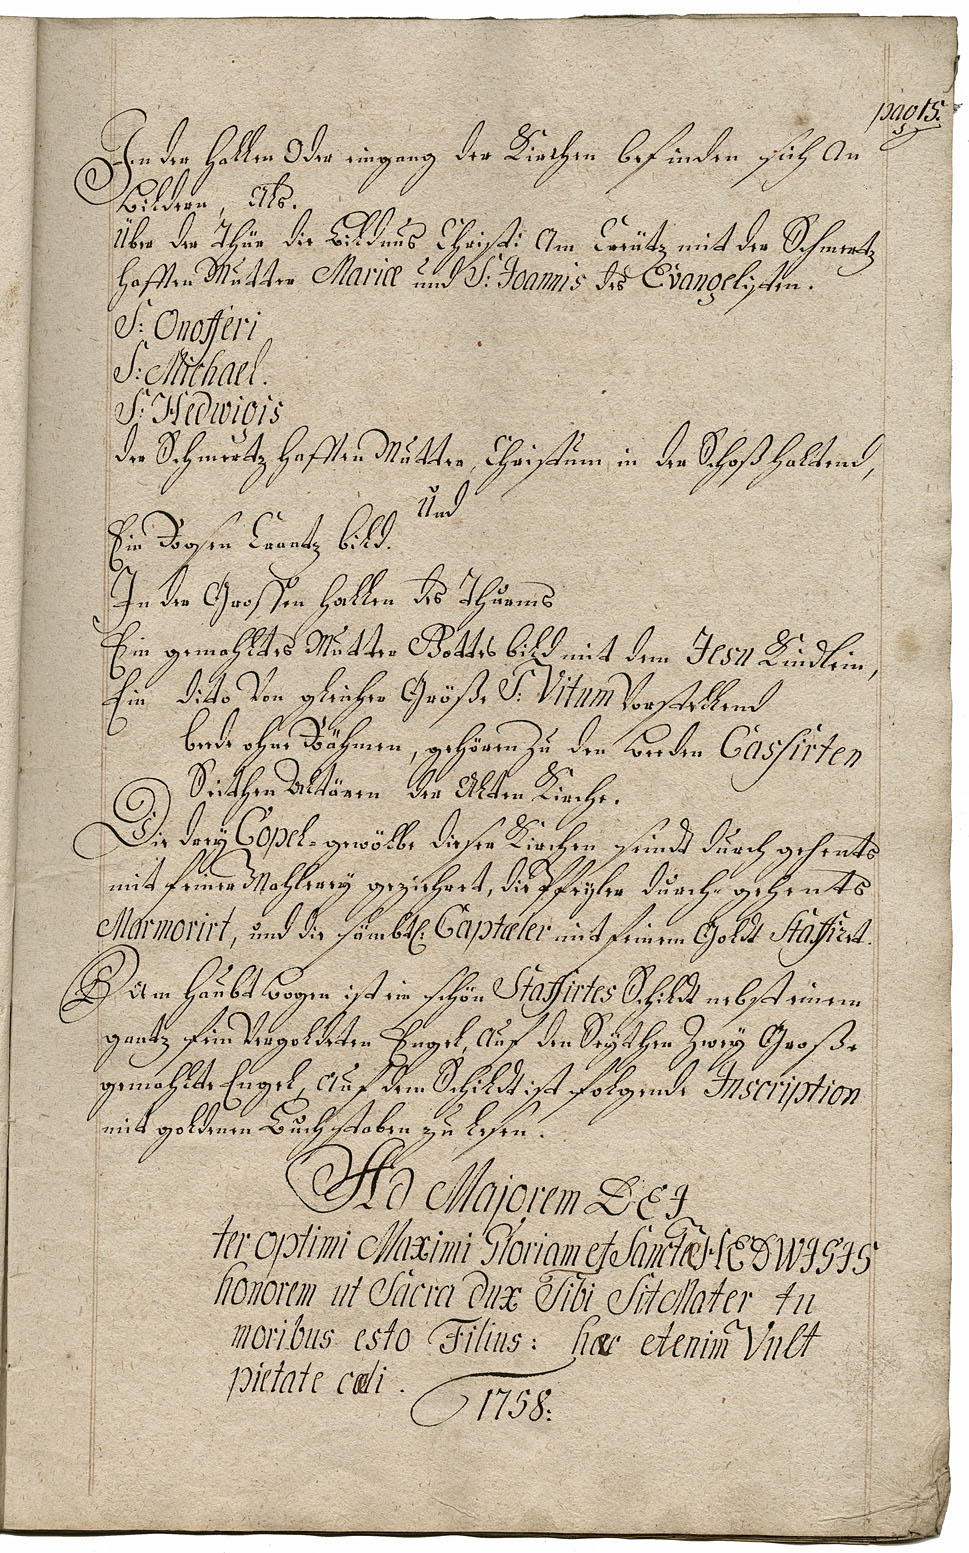 pag 15.
In der Hallen Oder eingang der Kirchen befinden sich An
Bildern, Als.
Über der Thür die Bildnus Christi Am Creütz mit der Schmertz
hafften Mutter Mariæ und S: Joannis des Evangelisten.
S: Onofferi
S: Michael.
S: Hedwigis
der Schmertzhafften Mutter, Christum in der Schoß haltend,
Und
Ein Rosen Crantz bild.
In der Grossen Hallen des Thurms
Ein gemahltes Mutter Gottes bild mit dem Jesu Kindlein,
Ein dito Von gleicher Größe S: Vitum Vorstellend
beede ohne Rähmen, gehören zu den beeden Cassirten
Seithen Altären der Alten Kirche.
Die drey Copel-gewölbe dieser Kirchen seindt durch gehents
mit feiner Mahlerey geziehret, die Pfeyler durch-gehents
Marmorirt, und die sämbtl: Captæler mit feinem Goldt Staffiert.
Am Haubt bogen ist ein schön Staffirtes Schildt nebst einem
gantz fein Vergoldeten Engel, Auf den Seythen Zwey Große
gemahlte Engel, Auf dem Schildt ist folgende Inscription
mit goldenen Buchstaben zu lesen.
Ad Majorem DEI
ter optimi Maximi Gloriam et Sanctæ HEDWIGIS
honorem ut Sacra dux Tibi Sit Mater tu
moribus esto Filius: hæc etenim Vult
pietate cœli.
1758: